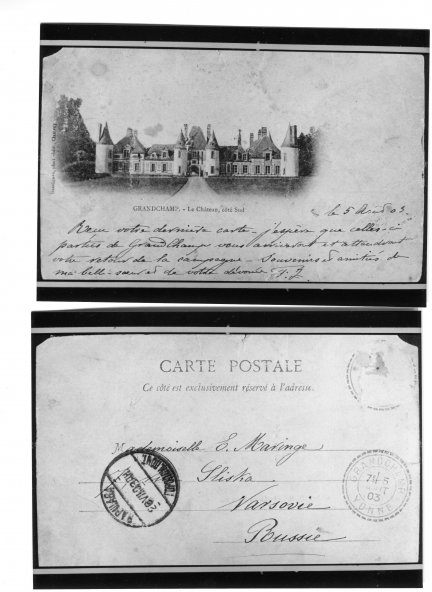 GRANDCHAMP. - Le Château, côté Sud
le 5 Août 03
Reçu votre dernière carte - j'espère que celles-ci
parties de GrandChamp vous arriveront et attendront
votre retour de la campagne - Souvenirs et amitiés de
ma belle-soeur et de votre dévouée
CARTE POSTALE
Ce côté est exclusivement réservé à l'adresse.
Mademoiselle E. Maringe
Sliska
Varsovie
Russie
GRANDCHAMP
03
YONNE